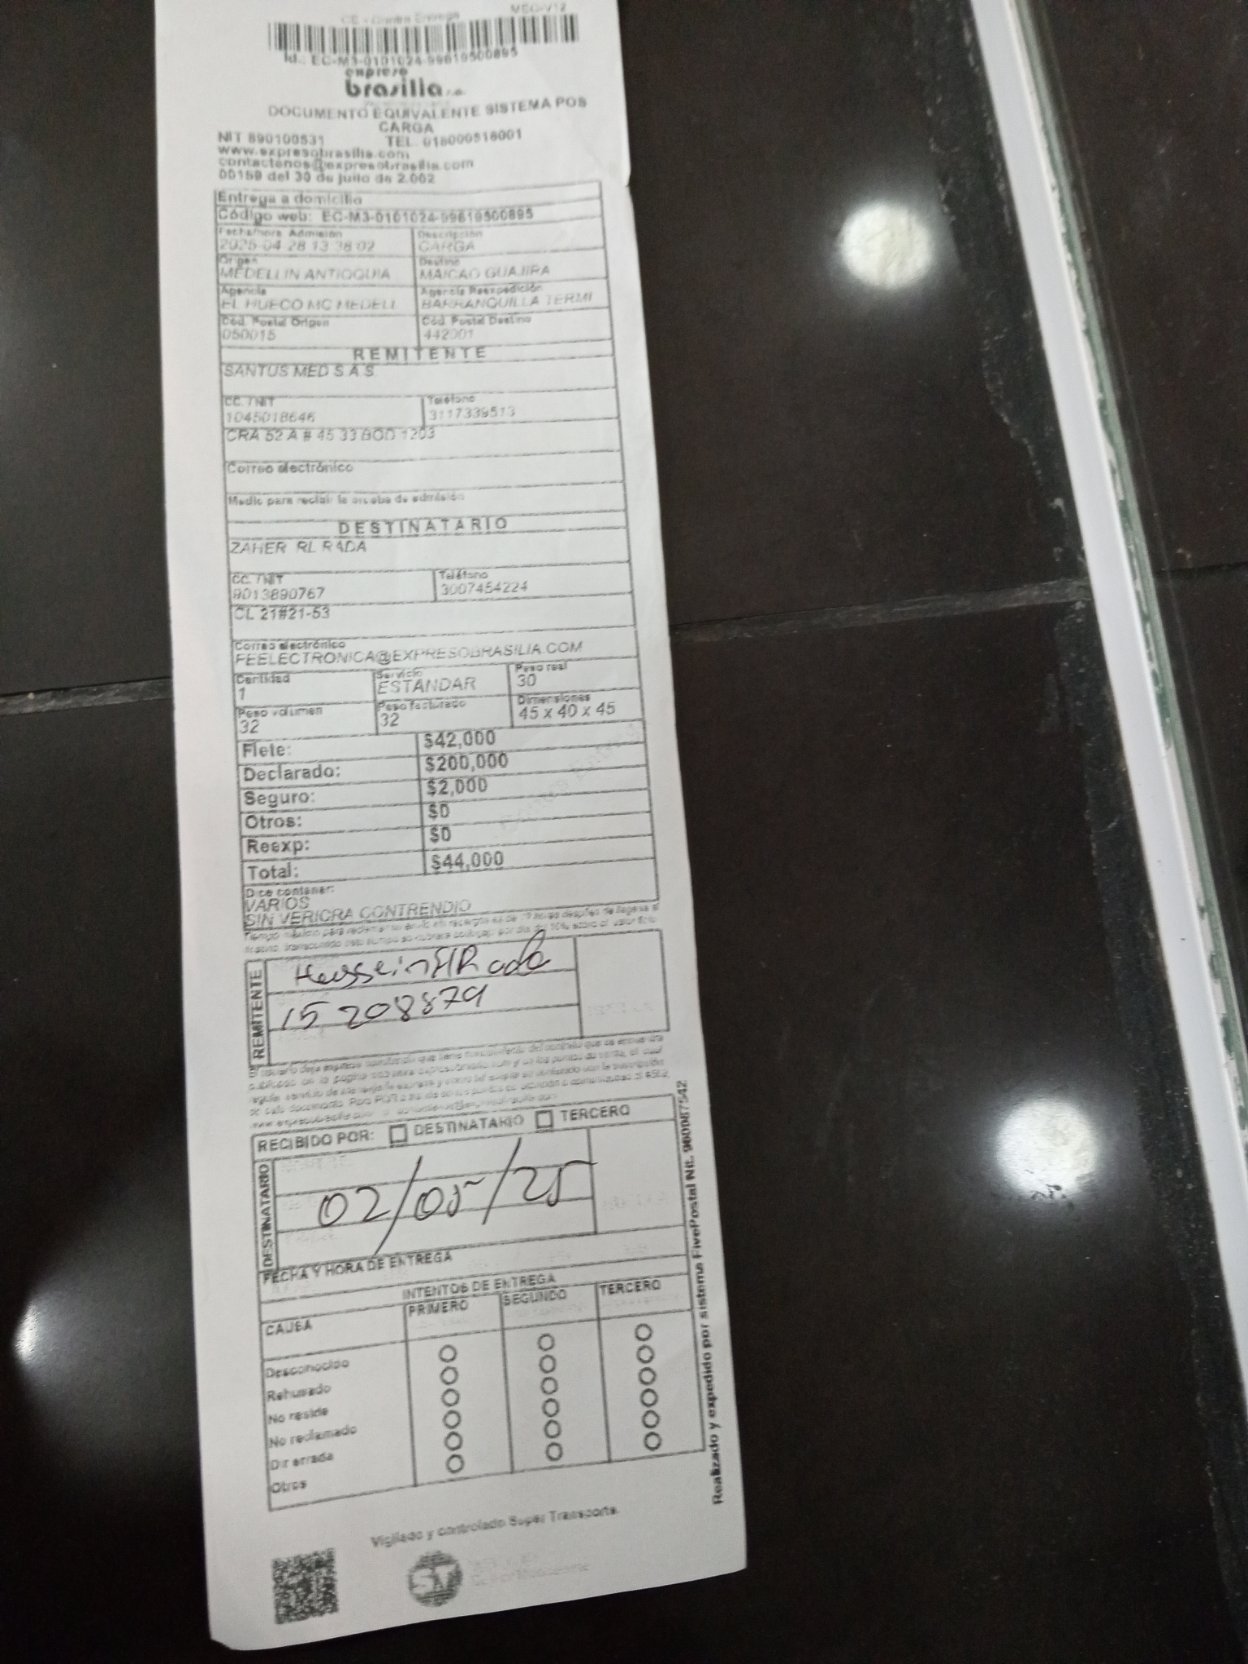 CE - Contra Entrega MEC-V12
Id.: EC-M3-0101024-99619500895
expreso
brasilia s.a.
DOCUMENTO EQUIVALENTE SISTEMA POS
CARGA
NIT 890100531 TEL. 018000518001
www.expresobrasilia.com
contactenos@expresobrasilia.com
00159 del 30 de julio de 2.002
Entrega a domicilio
Código web: EC-M3-0101024-99619500895
Fecha/hora Admisión Descripción
2025-04-28 13:38:02 CARGA
Origen Destino
MEDELLIN ANTIOQUIA MAICAO GUAJIRA
Agencia Agencia Reexpedición
EL HUECO MC MEDELL BARRANQUILLA TERMI
Cód. Postal Origen Cód. Postal Destino
050015 442001
REMITENTE
SANTUS MED S A S
CC. / NIT Teléfono
1045018646 3117339513
CRA 52 A # 45 33 BOD 1203
Correo electrónico
Medio para recibir la prueba de admisión
DESTINATARIO
ZAHER RL RADA
CC. / NIT Teléfono
9013890767 3007454224
CL 21#21-53
Correo electrónico
FEELECTRONICA@EXPRESOBRASILIA.COM
Cantidad Servicio Peso real
1 ESTANDAR 30
Peso volumen Peso facturado Dimensiones
32 32 45 x 40 x 45
Flete: $42,000
Declarado: $200,000
Seguro: $2,000
Otros: $0
Reexp: $0
Total: $44,000
Dice contener:
VARIOS
SIN VERICRA CONTRENDIO
REMITENTE
Hussein HRada
15208879
RECIBIDO POR: DESTINATARIO TERCERO
DESTINATARIO
02/05/25
FECHA Y HORA DE ENTREGA
INTENTOS DE ENTREGA
CAUSA PRIMERO SEGUNDO TERCERO
Desconocido
Rehusado
No reside
No reclamado
Dir errada
Otros
Realizado y expedido por sistema FivePostal Nit. 900087542
Vigilado y controlado Super Transporte.